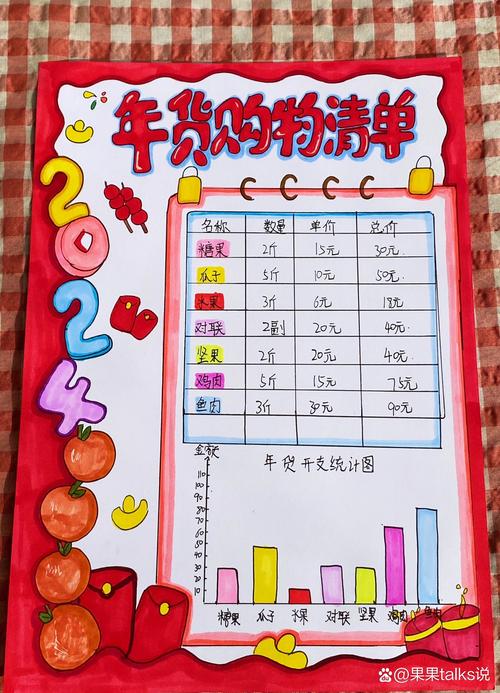 年货购物清单
2024
名称 数量 单价 总价
糖果 2斤 15元 30元
瓜子 5斤 10元 50元
水果 3斤 6元 18元
对联 2副 20元 40元
坚果 2斤 20元 40元
鸡肉 5斤 15元 75元
鱼肉 3斤 30元 90元
金额
年货开支统计图
110
100
90
80
70
60
50
40
30
20
10
糖果 瓜子 水果 对联 坚果 鸡肉 鱼肉
@果果talks说